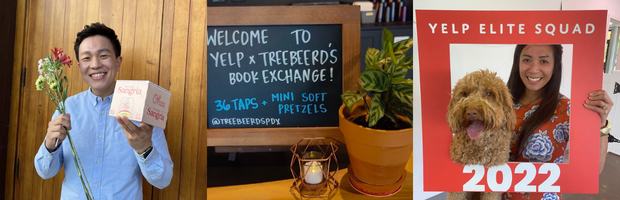 Sangria
Sangria
WELCOME TO
YELP x TREEBEERD'S
BOOK EXCHANGE!
36 TAPS + MINI SOFT
PRETZELS
@TREEBEERDSPDX
YELP ELITE SQUAD
2022